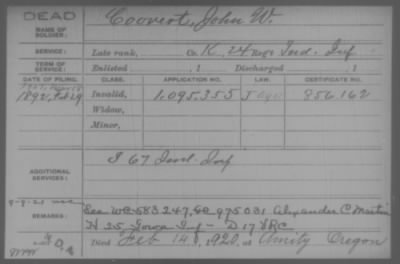 DEAD
NAME OF SOLDIER: Coovert, John W.
SERVICE: Late rank, Co. K, 24 Reg't Ind. Inf
TERM OF SERVICE: Enlisted , 1 Discharged , 1
DATE OF FILING. CLASS. APPLICATION NO. LAW. CERTIFICATE NO.
1892, Feb 29 Invalid, 1,095,355 856.162
Widow,
Minor,
ADDITIONAL SERVICES: I 67 Ind. Inf
REMARKS: See WC 583247, 975031 Alexander C Martin
H 25 Iowa Inf - D 17 VRC
Died Feb 14, 1920, at Amity Oregon